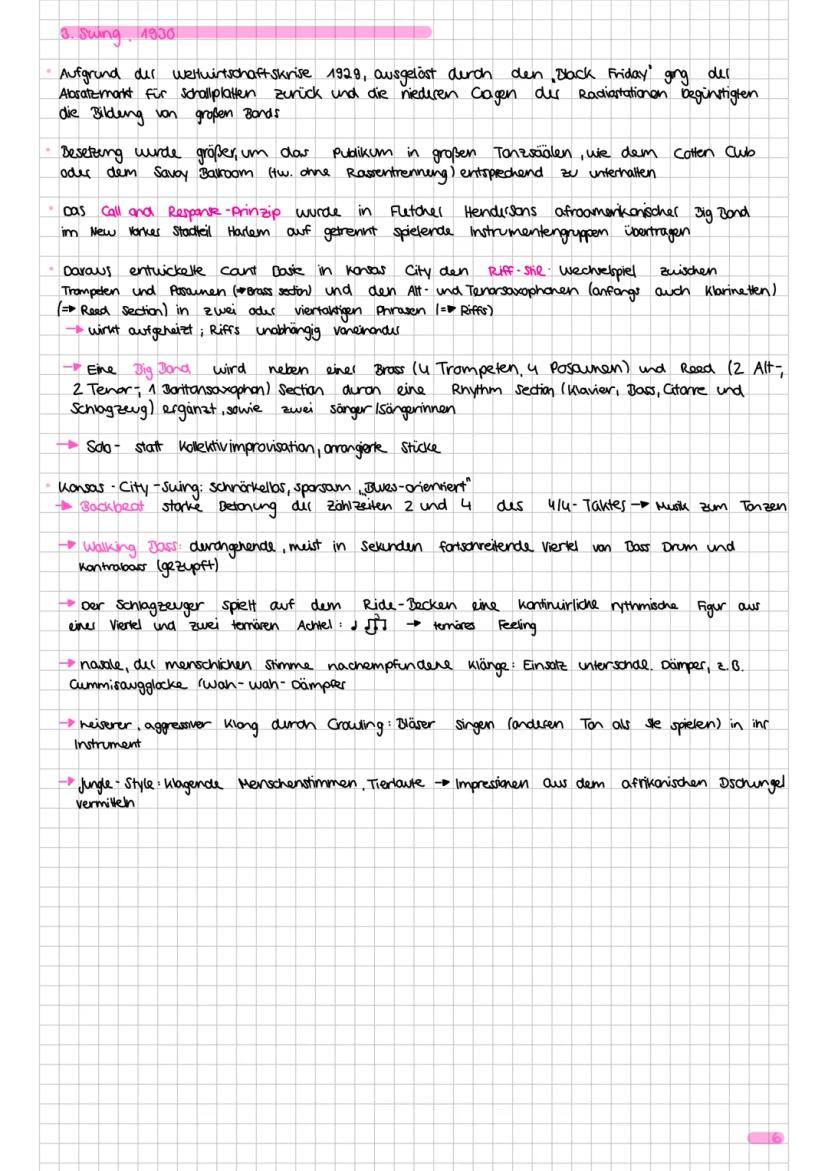 3. Swing, 1930
Aufgrund der Weltwirtschaftskrise 1929, ausgelöst durch den "Black Friday" ging der
Absatzmarkt für Schallplatten zurück und die niederen Gagen der Radiostationen begünstigten
die Bildung von großen Bands
Besetzung wurde größer, um das Publikum in großen Tanzsäälen, wie dem Cotten Club
oder dem Savoy Ballroom (tw. ohne Rassentrennung) entsprechend zu unterhalten
Das Call and Response-Prinzip wurde in Fletcher Hendersons afroamerikanischer Big Band
im New Yorker Stadtteil Harlem auf getrennt spielende Instrumentengruppen übertragen
Daraus entwickelte Count Basie in Kansas City den Riff-Stil: Wechselspiel zwischen
Trompeten und Posaunen (→ Brass section) und den Alt- und Tenorsaxophonen (anfangs auch Klarinetten)
(=> Reed Section) in zwei oder viertaktigen Phrasen (=> Riffs)
→ wirkt aufgeheizt; Riffs unabhängig voneinander
→ Eine Big Band wird neben einer Brass (4 Trompeten, 4 Posaunen) und Reed (2 Alt-,
2 Tenor-, 1 Baritonsaxophon) Section durch eine Rhythm Section (Klavier, Bass, Gitarre und
Schlagzeug) ergänzt, sowie zwei Sänger/Sängerinnen
→ Solo- statt Kollektivimprovisation, arrangierte Stücke
Kansas-City-Swing: schnörkellos, sparsam, "Blues-orientiert"
→ Backbeat starke Betonung der Zählzeiten 2 und 4 des 4/4-Taktes → Musik zum Tanzen
→ Walking Bass: durchgehende, meist in Sekunden fortschreitende Viertel von Bass Drum und
Kontrabass (gezupft)
→ Der Schlagzeuger spielt auf dem Ride-Becken eine kontinuirliche rythmische Figur aus
einer Viertel und zwei ternären Achtel: ♩ ♫ → ternäres Feeling
→ nasale, der menschichen Stimme nachempfundene Klänge: Einsatz unterschdl. Dämper, z.B.
Gummisaugglocke (Wah-wah-Dämpfer
→ heiserer, aggressiver Klang durch Growling: Bläser singen (anderen Ton als sie spielen) in ihr
Instrument
→ Jungle-Style: klagende Menschenstimmen, Tierlaute → Impressionen aus dem afrikanischen Dschungel
vermitteln
6